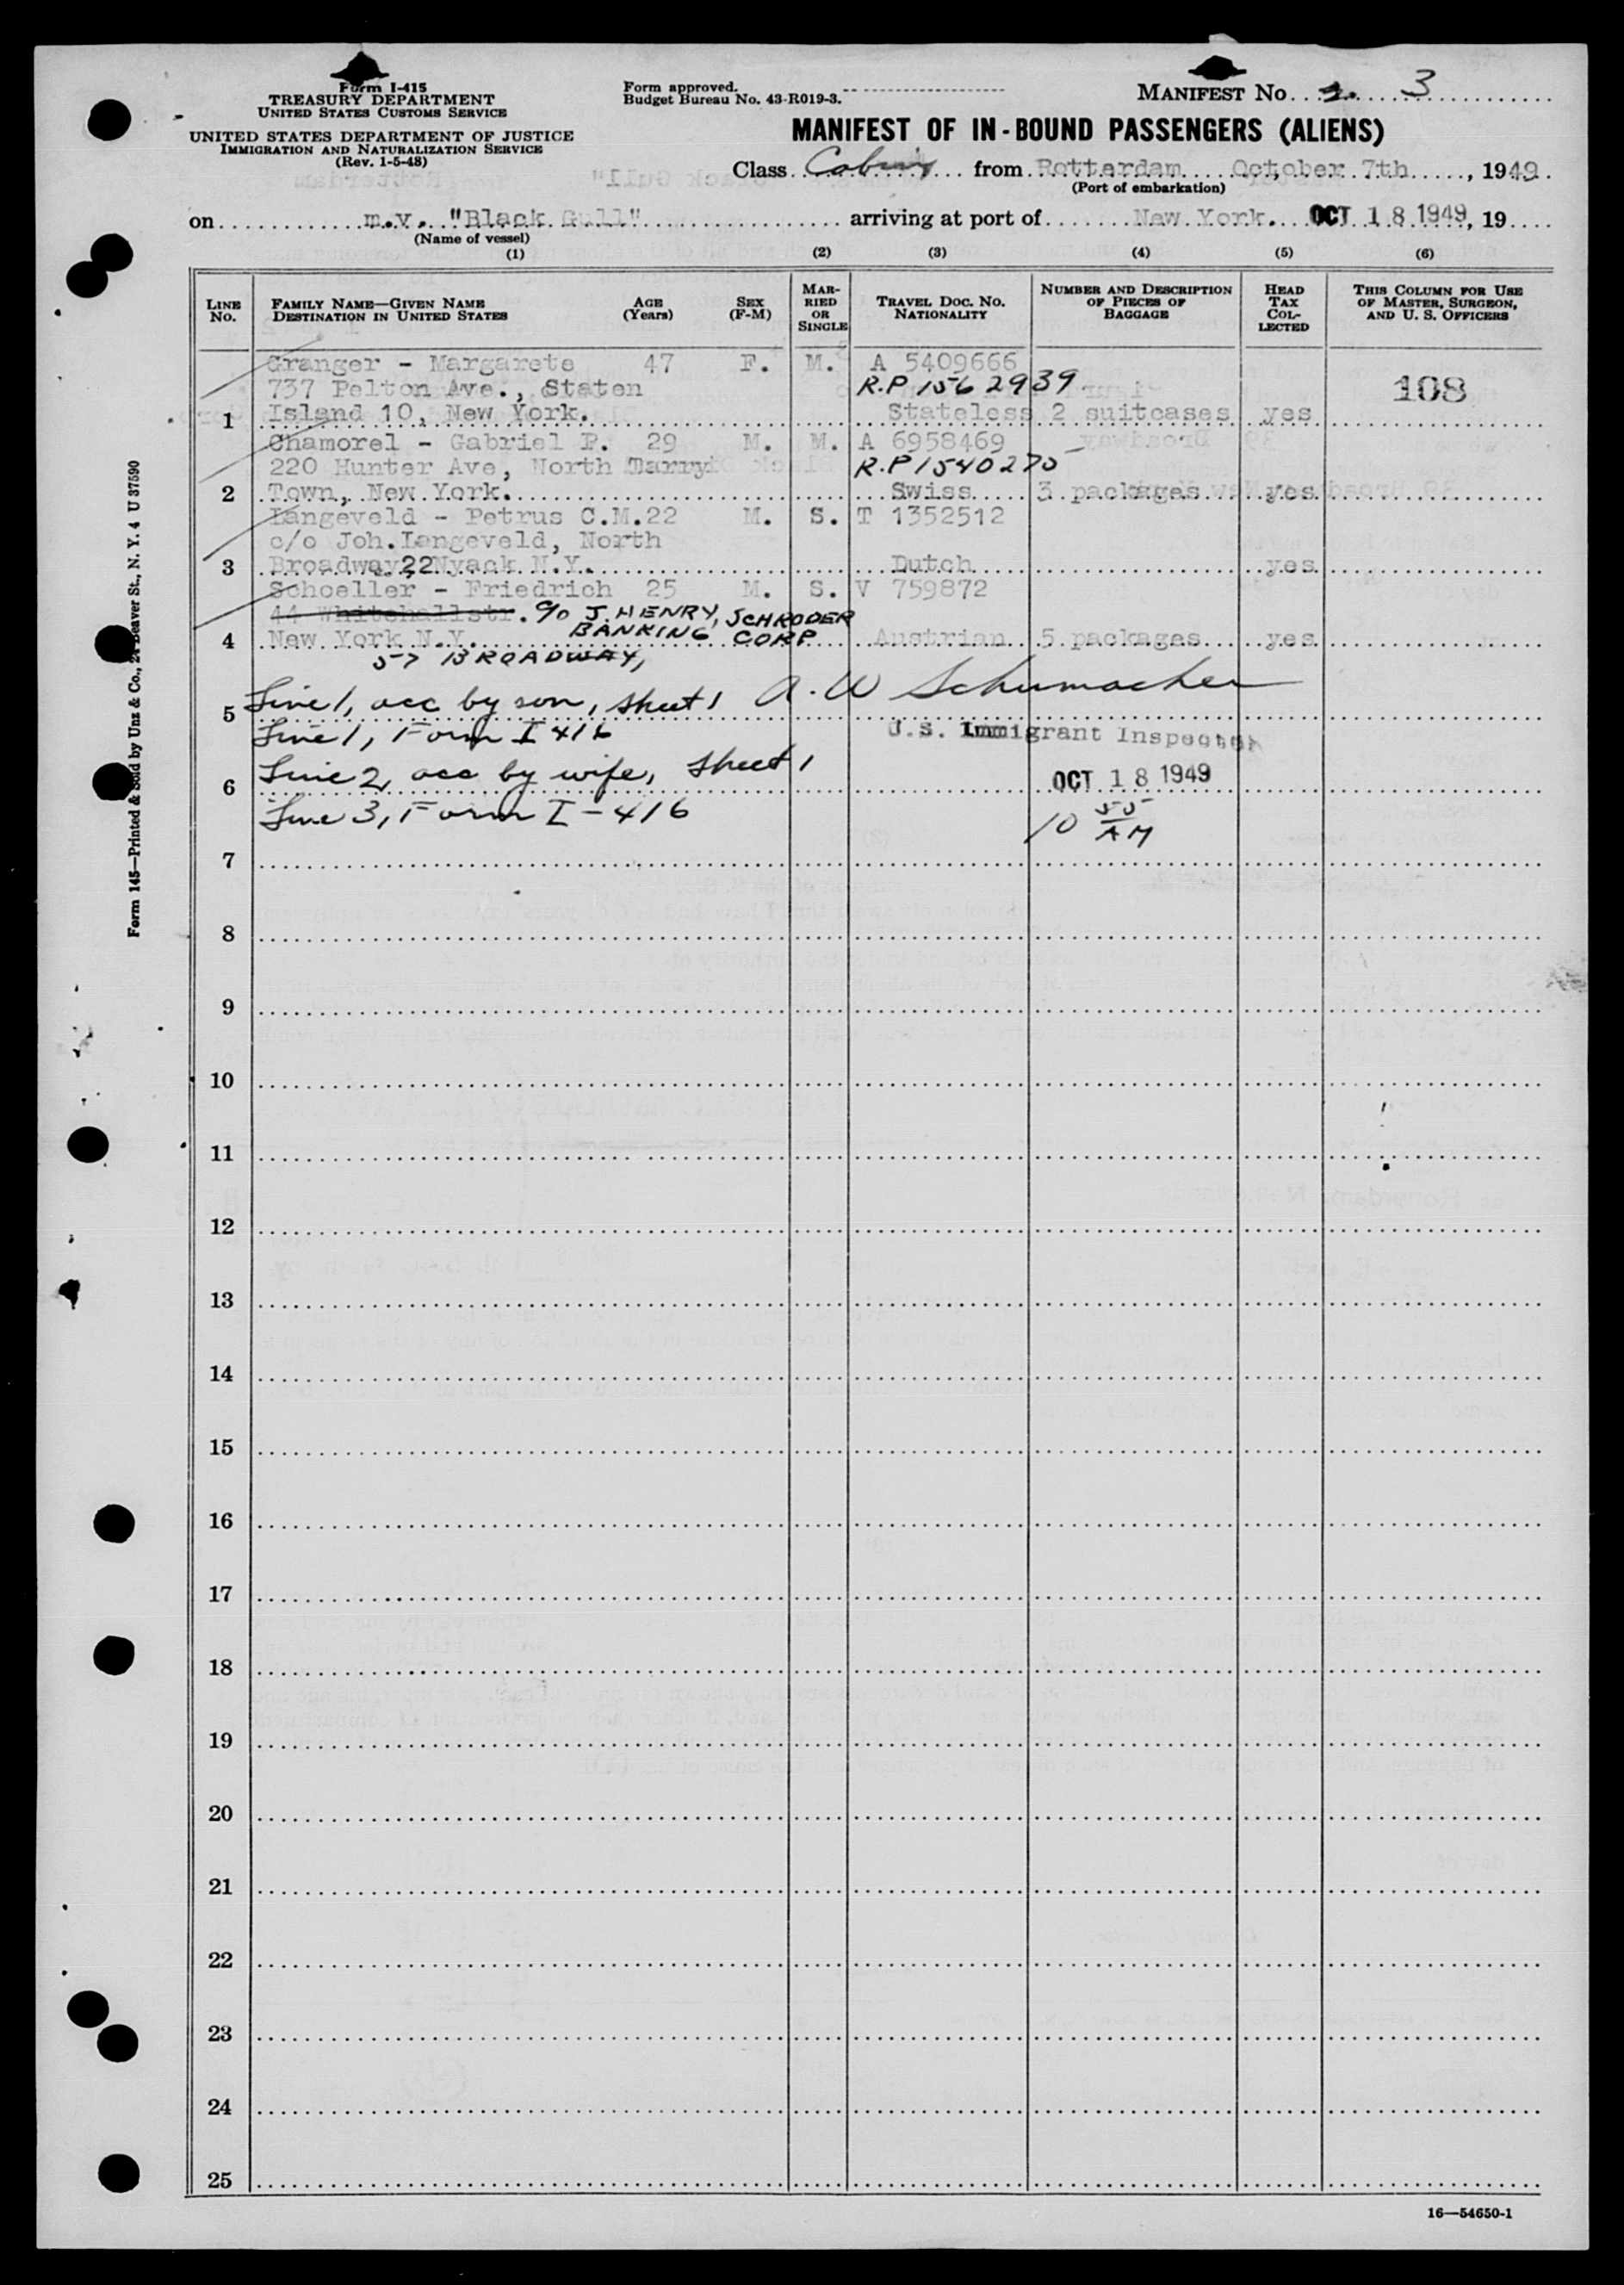 Form I-415
TREASURY DEPARTMENT
UNITED STATES CUSTOMS SERVICE
UNITED STATES DEPARTMENT OF JUSTICE
IMMIGRATION AND NATURALIZATION SERVICE
(Rev. 1-5-48)
Form approved.
Budget Bureau No. 43-R019-3.
MANIFEST No. 3
MANIFEST OF IN-BOUND PASSENGERS (ALIENS)
Class Cabin from Rotterdam October 7th, 1949
(Port of embarkation)
on m.v. "Black Gull" arriving at port of New York. OCT 18 1949, 19
(Name of vessel)
(1) (2) (3) (4) (5) (6)
LINE No.
FAMILY NAME—GIVEN NAME
DESTINATION IN UNITED STATES
AGE (Years)
SEX (F-M)
MARRIED OR SINGLE
TRAVEL DOC. NO.
NATIONALITY
NUMBER AND DESCRIPTION OF PIECES OF BAGGAGE
HEAD TAX COLLECTED
THIS COLUMN FOR USE OF MASTER, SURGEON, AND U. S. OFFICERS
Granger - Margarete 47 F. M. A 5409666
737 Pelton Ave., Staten R.P 1562939 108
1 Island 10, New York. Stateless 2 suitcases yes
Chamorel - Gabriel P. 29 M. M. A 6958469
220 Hunter Ave, North Tarry R.P 1540275
2 Town, New York. Swiss 3 packages yes
Langeveld - Petrus C.M. 22 M. S. T 1352512
c/o Joh. Langeveld, North
3 Broadway 22 Nyack N.Y. Dutch yes
Schoeller - Friedrich 25 M. S. V 759872
44 Whitehallstr. c/o J. HENRY, SCHRODER
BANKING CORP
4 New York N.Y. Austrian 5 packages yes
57 BROADWAY,
Line 1, acc by son, sheet 1 A. W Schumacher
5
Line 1, Form I 416 U.S. Immigrant Inspector
Line 2, acc by wife, sheet 1
6 OCT 18 1949
Line 3, Form I-416 10 55 AM
7
8
9
10
11
12
13
14
15
16
17
18
19
20
21
22
23
24
25
16—54650-1
Form 145—Printed & Sold by Unz & Co., 24 Beaver St., N. Y. 4 U 37590